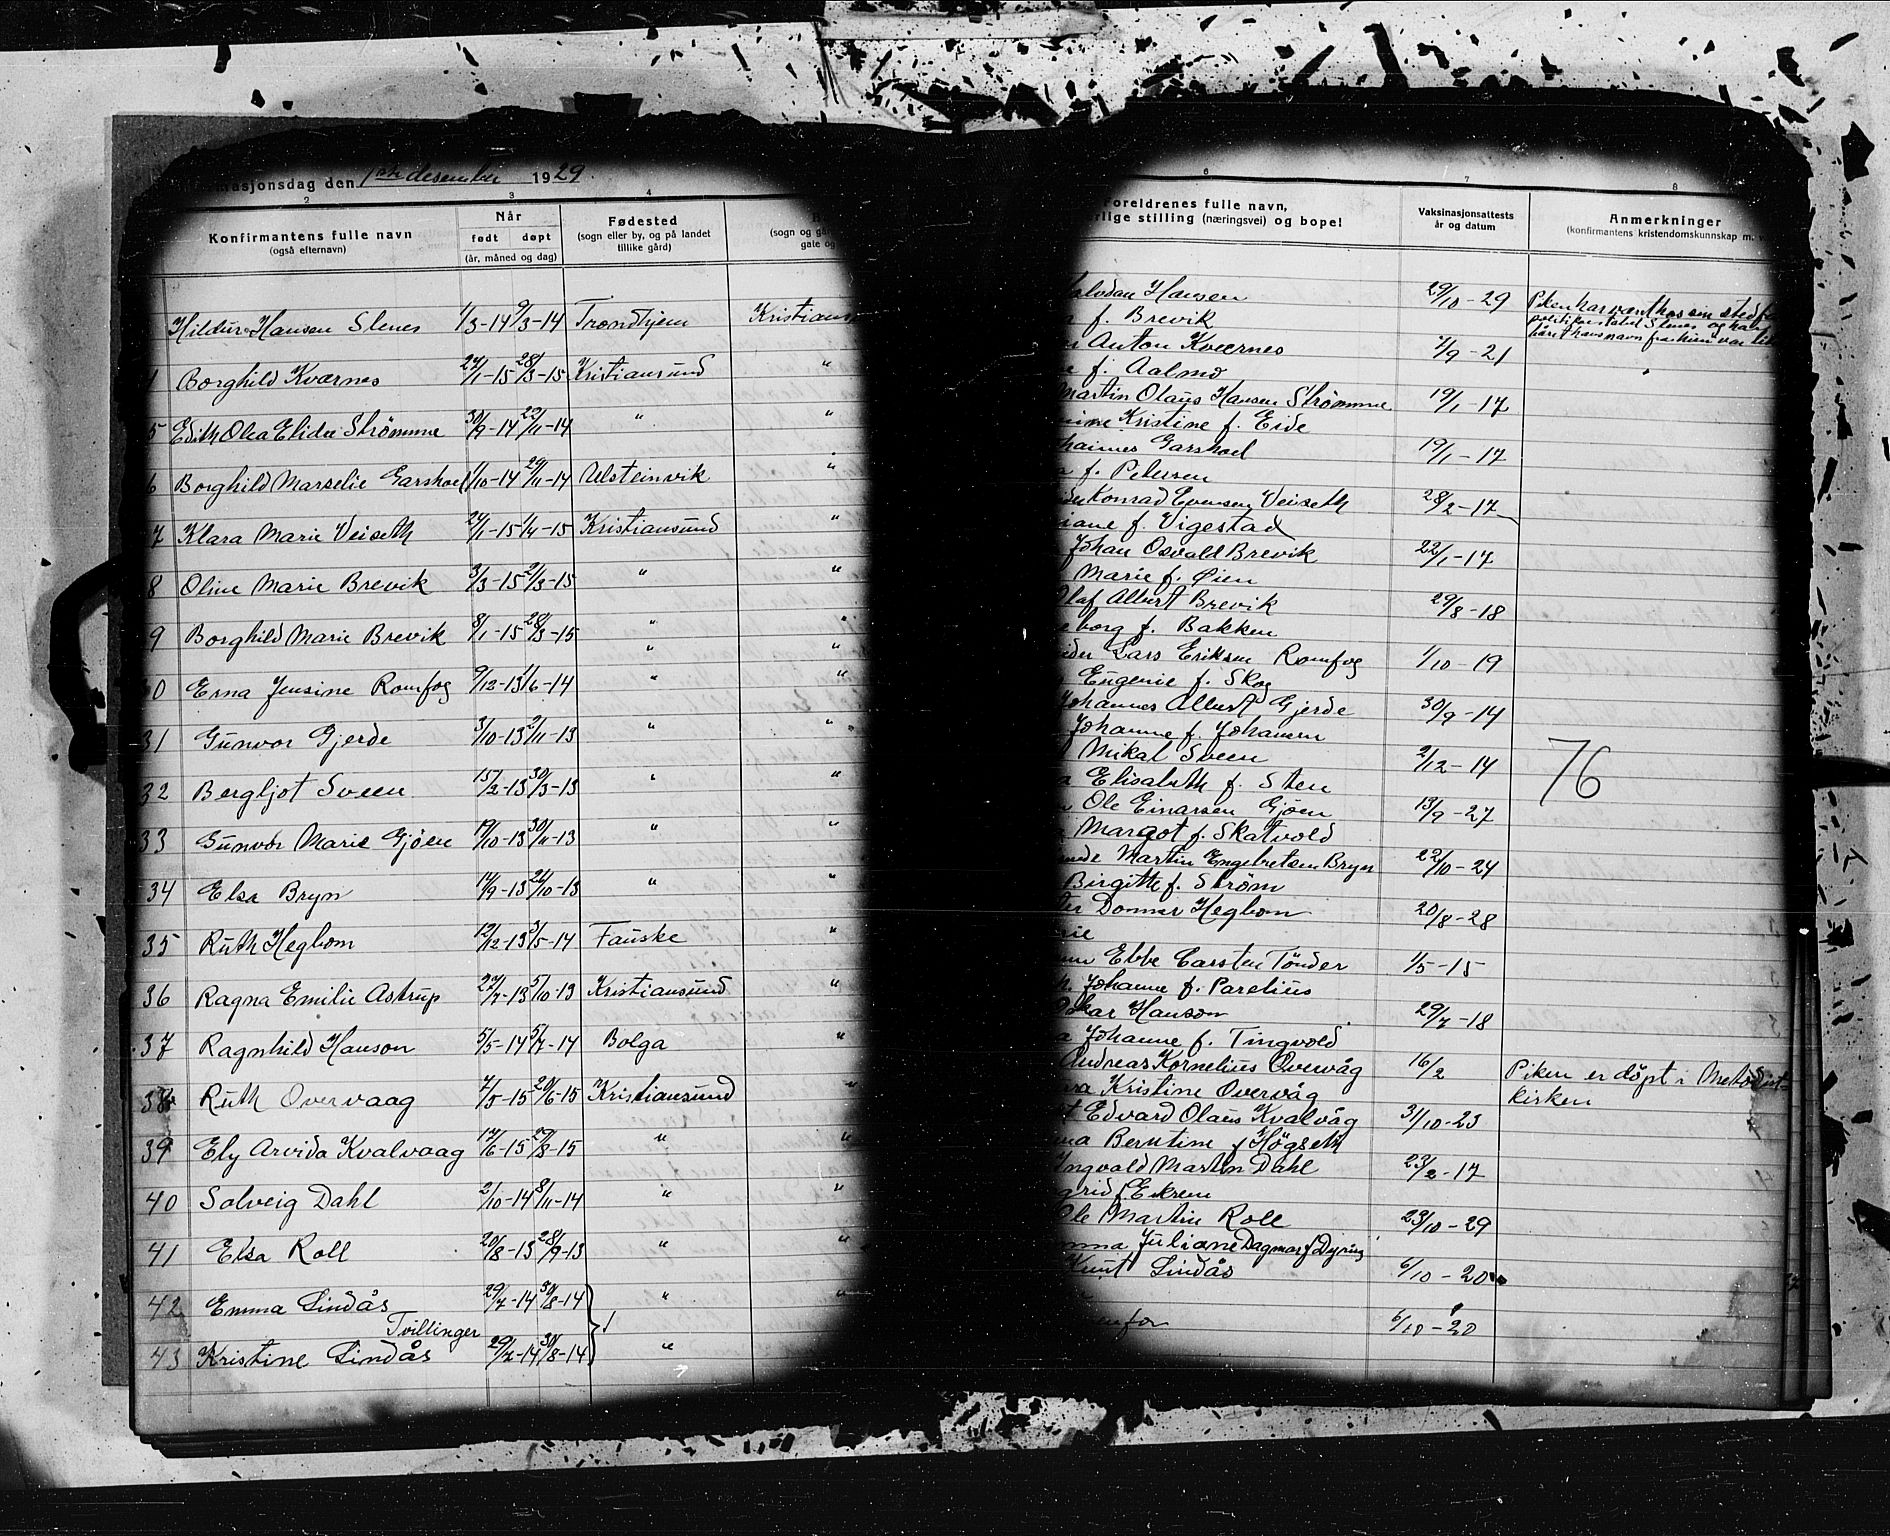 asjonsdag den 1ste desember 1929.
2 3 4
Konfirmantens fulle navn
(også efternavn)
Når
født døpt
(år, måned og dag)
Fødested
(sogn eller by, og på landet
tillike gård)
(sogn og
gate og
Hildur Hansen Slenes 1/3-14 9/3-14 Trondhjem Kristians
Borghild Kværnes 24/1-15 28/3-15 Kristiansund "
5 Edith Olea Elida Strømme 30/9-14 22/11-14 " "
6 Borghild Marselie Garshoel 1/10-14 29/11-14 Ulsteinvik "
7 Klara Marie Veiseth 24/1-15 1/4-15 Kristiansund "
8 Oline Marie Brevik 3/3-15 21/3-15 " "
9 Borghild Marie Brevik 8/1-15 28/3-15 " "
30 Erna Jensine Romfog 9/12-13 1/6-14 " "
31 Gunvor Gjerde 3/10-13 2/11-13 " "
32 Bergljot Sveen 15/2-13 30/3-13 " "
33 Gunvor Marie Gjøen 19/10-13 30/11-13 " "
34 Elsa Bryn 14/9-13 26/10-13 " "
35 Ruth Hegbom 12/12-13 3/5-14 Fauske "
36 Ragna Emilie Astrup 27/7-13 5/10-13 Kristiansund "
37 Ragnhild Hanson 5/5-14 5/7-14 Bolga "
38 Ruth Overvaag 7/5-15 20/6-15 Kristiansund "
39 Ely Arvida Kvalvaag 17/6-15 29/8-15 " "
40 Solveig Dahl 2/10-14 8/11-14 " "
41 Elsa Roll 20/8-13 28/9-13 " "
42 Emma Lindås 29/7-14 30/8-14 " "
Tvillinger
43 Kristine Lindås 29/7-14 30/8-14 "
6 7 8
Foreldrenes fulle navn,
rlige stilling (næringsvei) og bopel
Vaksinasjonsattests
år og datum
Anmerkninger
(konfirmantens kristendomskunnskap m.
alvdan Hansen 29/10-29 Piken har vært hos sin sted
f. Brevik
Anton Kværnes 7/9-21
f. Aalmo
Martin Olaus Hansen Strømme 19/1-17
Kristine f. Eide
hannes Garshoel 19/1-17
f. Petersen
Konrad Evensen Veiseth 28/2-17
iane f. Vigestad
Johan Osvald Brevik 22/1-17
Marie f. Øien
Olaf Albert Brevik 29/8-18
eborg f. Bakken
Lars Eriksen Romfog 1/10-19
Eugenie f. Skog
Johannes Albert Gjerde 30/9-14
Johanne f. Johansen
Mikal Sveen 2/12-14
76
Elisabeth f. Sten
Ole Einarsen Gjøen 13/9-27
Margot f. Skatvold
Martin Engebretsen Bryn 22/10-24
Birgitte f. Strøm
Donner Hegbom 20/8-28
Ebbe Carsten Tönder 1/5-15
Johanne f. Parelius
Oskar Hanson 29/7-18
Johanne f. Tingvold
Andreas Kornelius Overvåg 16/2 Piken er døpt i Metodist
Kristine Overvåg kirken
Edvard Olaus Kvalvåg 31/10-23
Berntine f Høgseth
Ingvald Martin Dahl 23/2-17
grid f. Ekrem
Ole Martin Roll 23/10-29
Juliane Dagmar f Dyring
Knut Lindås 6/10-20
enfor 6/10-20